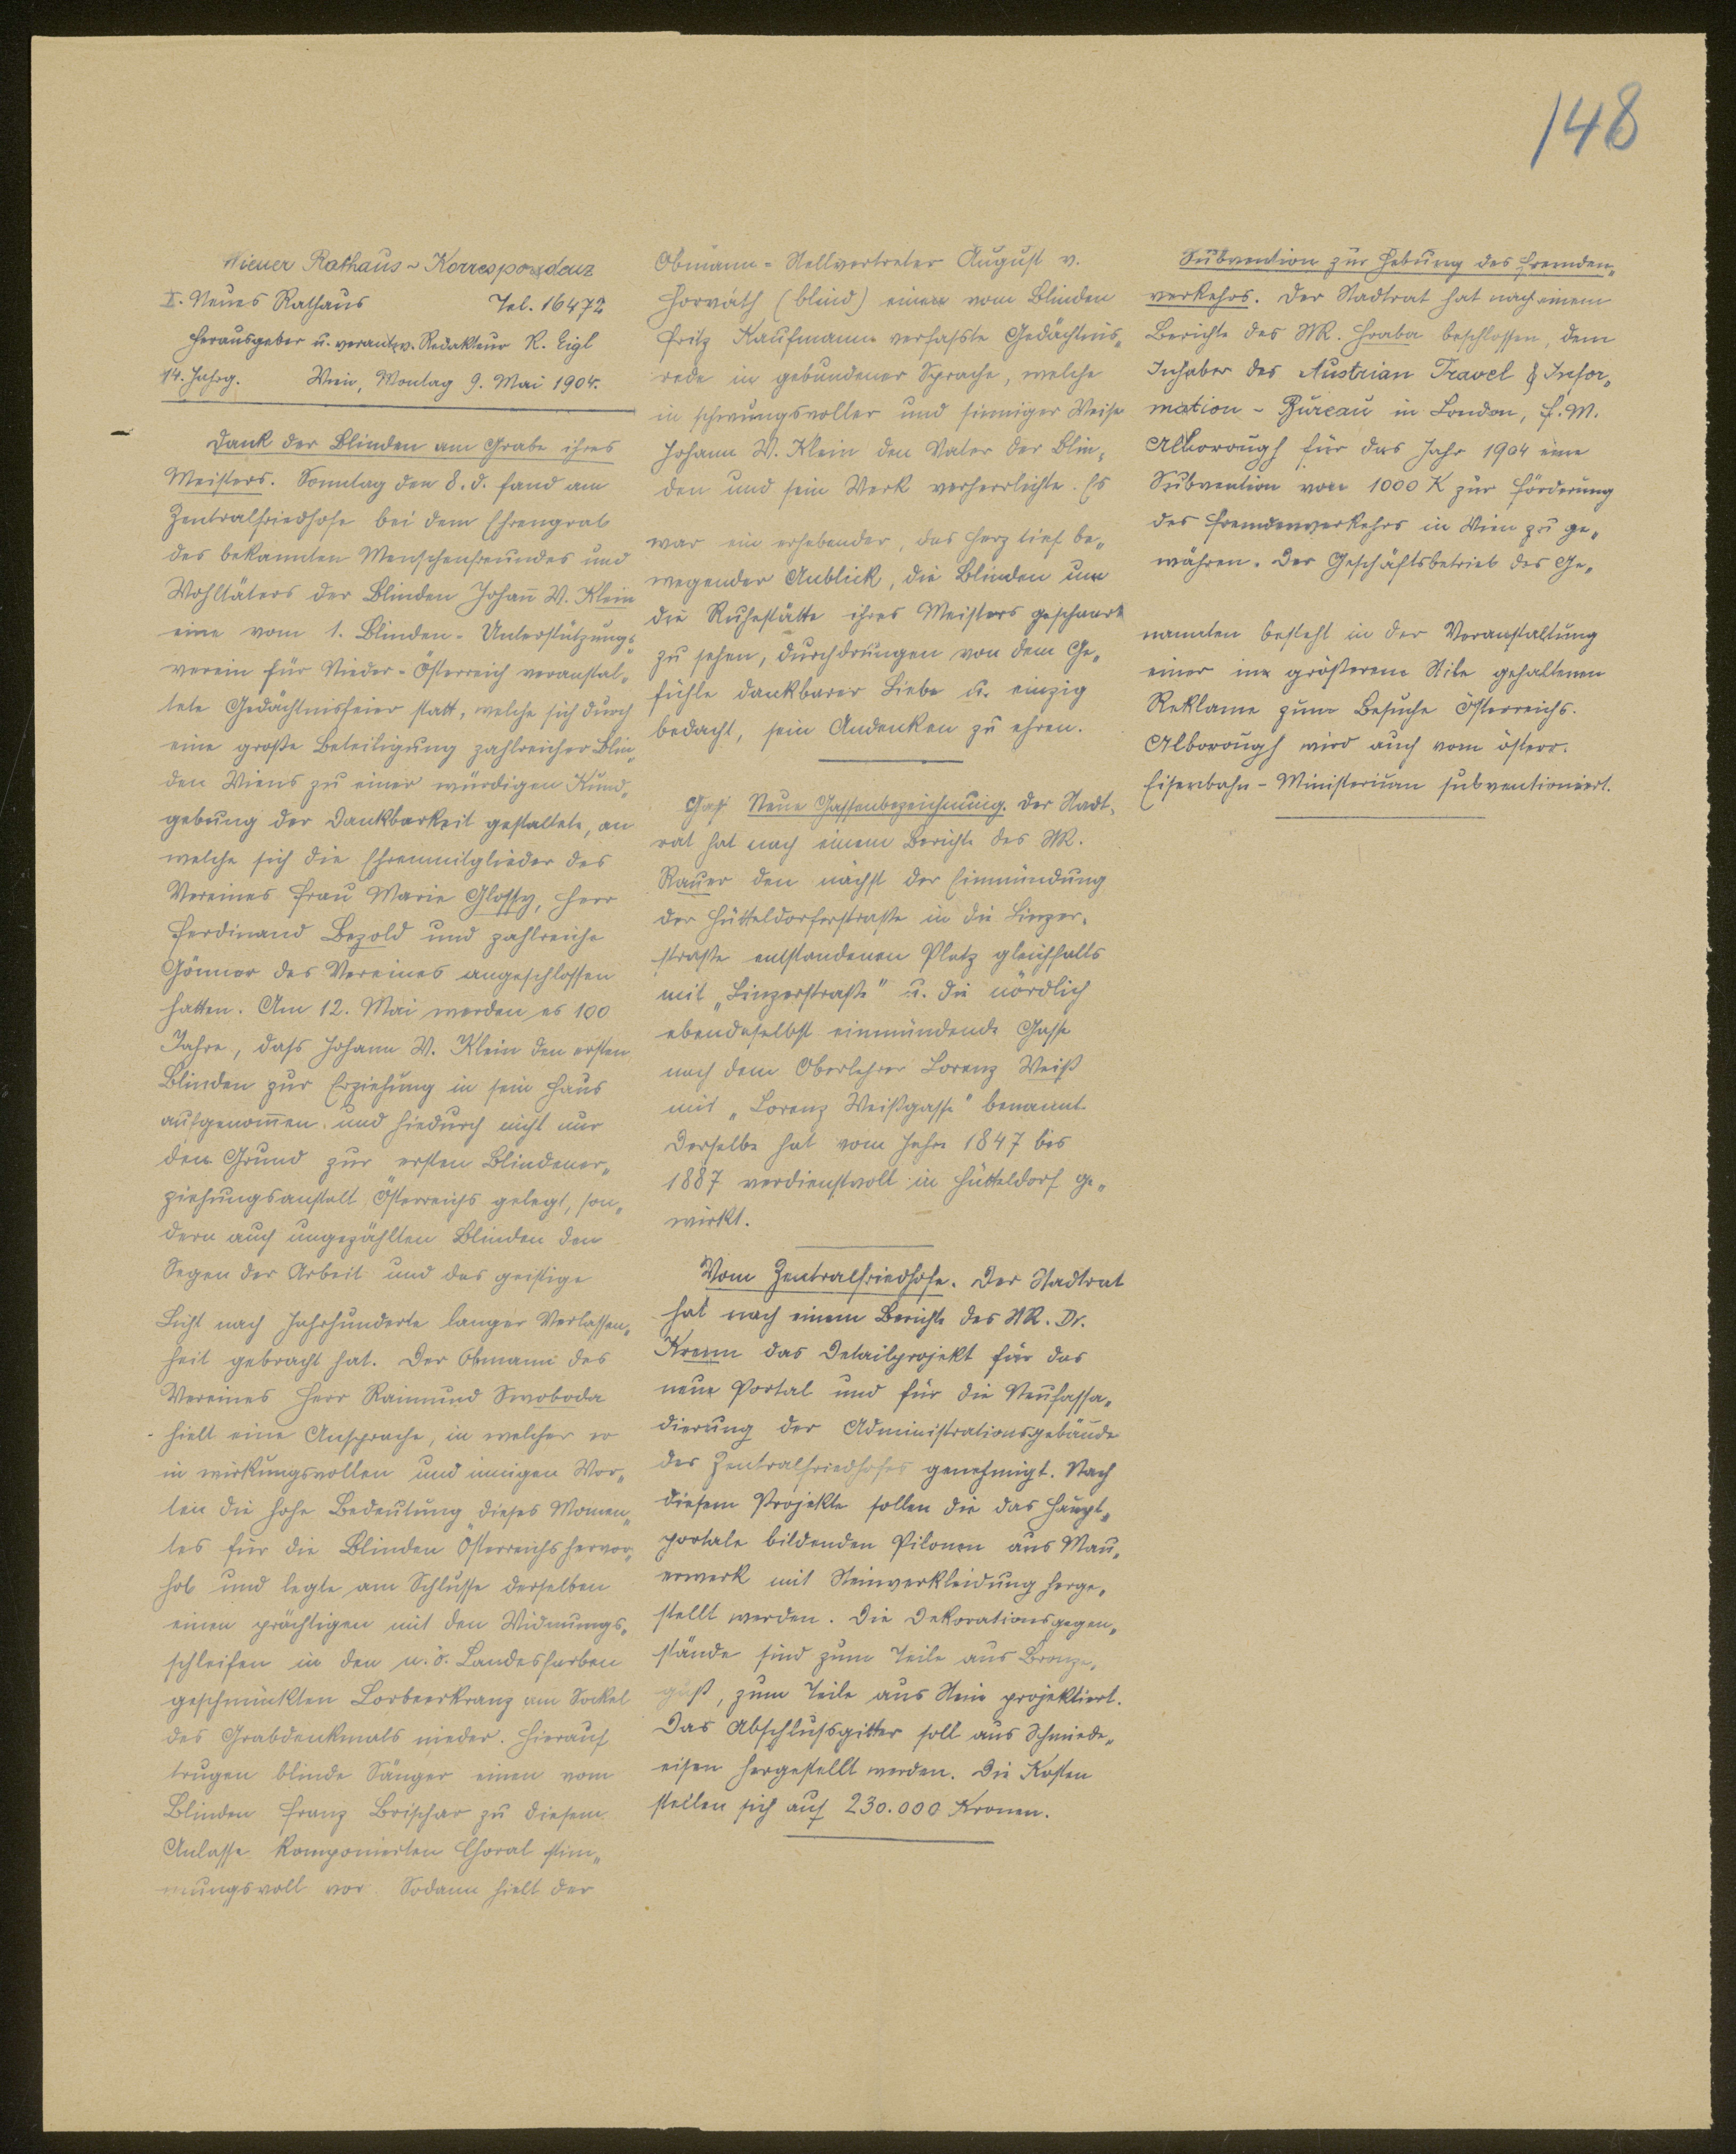 148
Wiener Rathaus-Korrespondenz
I. Neues Rathaus Tel. 16472
Herausgeber u. verantw. Redakteur R. Eigl
14. Jahrg. Wien, Montag 9. Mai 1904.
Dank der Blinden am Grabe ihres
Meisters. Sonntag den 8. d. fand am
Zentralfriedhofe bei dem Ehrengrab
des bekannten Menschenfreundes und
Wohltäters der Blinden Johan̄ W. Klein
eine vom 1. Blinden-Unterstützungs„
verein für Nieder-Österreich veranstal„
tete Gedächtnisfeier statt, welche sich durch
eine große Beteiligung zahlreicher Blin„
den Wiens zu einer würdigen Kund„
gebung der Dankbarkeit gestaltete, an
welche sich die Ehrenmitglieder des
Vereines Frau Marie Glossy, Herr
Ferdinand Bezold und zahlreiche
Gönner des Vereines angeschlossen
hatten. Am 12. Mai werden es 100
Jahre, dass Johann W. Klein den ersten
Blinden zur Erziehung in sein Haus
aufgenom̄en und hiedurch nicht nur
den Grund zur ersten Blindener„
ziehungsanstalt Österreichs gelegt, son„
dern auch ungezählten Blinden den
Segen der Arbeit und das geistige
Licht nach Jahrhunderte langer Verlassen„
heit gebracht hat. Der Obmann des
Vereines Herr Raimund Swoboda
hielt eine Ansprache, in welcher er
in wirkungsvollen und innigen Wor„
ten die hohe Bedeutung dieses Momen„
tes für die Blinden Österreichs hervor„
hob und legte am Schlusse derselben
einen prächtigen mit den Widmungs„
schleifen in den n. ö. Landesfarben
geschmückten Lorbeerkranz am Sockel
des Grabdenkmals nieder. Hierauf
trugen blinde Sänger einen vom
Blinden Franz Brischar zu diesem
Anlasse komponierten Choral stim„
mungsvoll vor. Sodann hielt der
Obmann-Stellvertreter August v.
Horváth (blind) einen vom Blinden
Fritz Kaufmann verfasste Gedächtnis„
rede in gebundener Sprache, welche
in schwungsvoller und sinniger Weise
Johann W. Klein den Vater der Blin„
den und sein Werk verherrlichte. Es
war ein erhebender, das Herz tief be„
wegender Anblick, die Blinden um
die Ruhestätte ihres Meisters geschaart
zu sehen, durchdrungen von dem Ge„
fühle dankbarer Liebe u. einzig
bedacht, sein Andenken zu ehren.
Gaß Neue Gassenbezeichnung. Der Stadt„
rat hat nach einem Berichte des StR.
Rauer den nächst der Einmündung
der Hütteldorferstraße in die Linzer„
straße entstandenen Platz gleichfalls
mit „Linzerstraße" u. die nördlich
ebendaselbst einmündende Gasse
nach dem Oberlehrer Lorenz Weiß
mit „Lorenz Weißgasse" benannt.
Derselbe hat vom Jahre 1847 bis
1887 verdienstvoll in Hütteldorf ge„
wirkt.
Vom Zentralfriedhofe. Der Stadtrat
hat nach einem Berichte des StR. Dr.
Krenn das Detailprojekt für das
neue Portal und für die Neufassa„
dierung der Administrationsgebäude
des Zentralfriedhofes genehmigt. Nach
diesem Projekte sollen die das Haupt„
portale bildenden Pilonen aus Mau„
erwerk mit Steinverkleidung herge„
stellt werden. Die Dekorationsgegen„
stände sind zum Teile aus Bronze„
guß, zum Teile aus Stein projektiert.
Das Abschlussgitter soll aus Schmiede„
eisen hergestellt werden. Die Kosten
stellen sich auf 230.000 Kronen.
Subvention zur Hebung des Fremden„
verkehrs. Der Stadtrat hat nach einem
Berichte des StR. Hraba beschlossen, dem
Inhaber des Austrian Travel & Infor„
mation-Bureau in London, F. W.
Alborough für das Jahr 1904 eine
Subvention von 1000 K zur Förderung
des Fremdenverkehrs in Wien zu ge„
währen. Der Geschäftsbetrieb des Ge„
nannten besteht in der Veranstaltung
einer im größerem Stile gehaltenen
Reklame zum Besuche Österreichs.
Alborough wird auch vom österr.
Eisenbahn-Ministerium subventioniert.